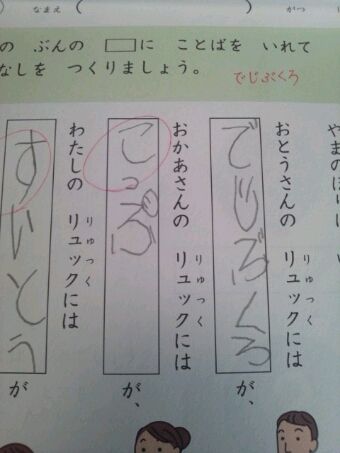 なまえ（　）がつ
の ぶんの □に ことばを いれて
なしを つくりましょう。
でじぶくろ
やまのぼりに
おとうさんの リュックには
りゅっく
でじぶくろ が、
おかあさんの リュックには
りゅっく
こっぷ が、
わたしの リュックには
りゅっく
すいとう が